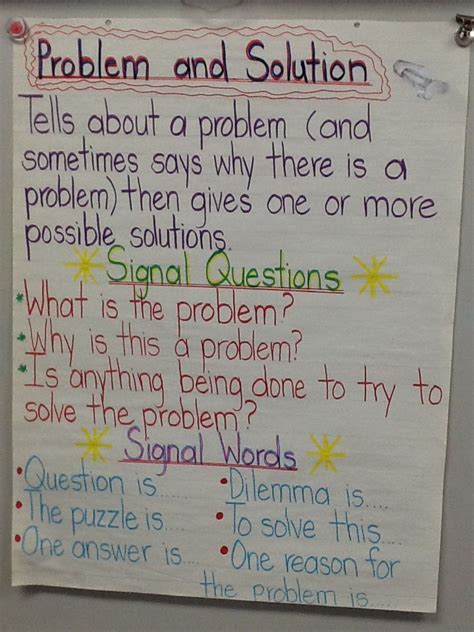 Problem and Solution
Tells about a problem (and
sometimes says why there is a
problem) then gives one or more
possible solutions.
Signal Questions
*What is the problem?
*Why is this a problem?
*Is anything being done to try to
solve the problem?
Signal Words
•Question is.....
•Dilemma is....
•The puzzle is....
•To solve this....
•One answer is....
•One reason for
the problem is....